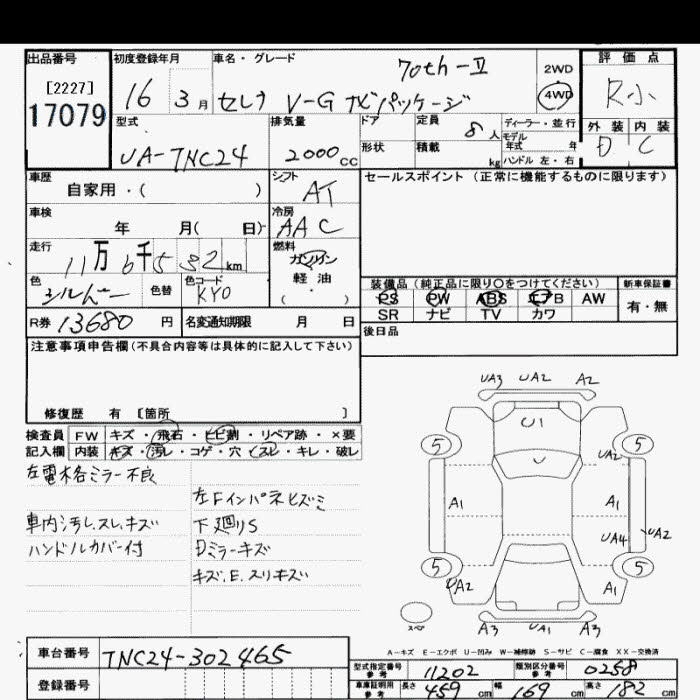 出品番号
初度登録年月
車名・グレード
70th-Ⅱ
2WD
4WD
評価点
R小
[2227]
17079
16 3月
セレナ V-G ナビパッケージ
外装 内装
D C
型式
UA-TNC24
排気量
2000cc
ドア
形状
定員
8人
積載
kg
ディーラー・並行
モデル
年式 年
ハンドル 左・右
車歴
自家用・( )
シフト
AT
セールスポイント(正常に機能するものに限ります)
車検
年 月( 日)
冷房
AAC
走行
11万6千532km
燃料
ガソリン
軽油
( ・ )
色
シルバー
色替
色コード
KY0
装備品(純正品に限り〇をつけてください)
新車保証書
PS PW ABS エアB AW
SR ナビ TV カワ
有・無
R券 13680円
名変通知期限 月 日
後日品
注意事項申告欄(不具合内容等は具体的に記入して下さい)
修復歴 有 [箇所 ]
検査員
記入欄
FW キズ・飛石・ヒビ割・リペア跡・×要
内装 キズ・汚レ・コゲ・穴・スレ・キレ・破レ
左電格ミラー不良
左Fインパネヒズミ
車内汚レ、スレ、キズ
下廻りS
ハンドルカバー付
Dミラーキズ
キズ、E、スリキズ
UA3 UA2 A2
U1
5 5
UA2
A1 A1
UA4 UA2
5 5
UA2 A1
A3 UA1 A3
スペア
A-キズ E-エクボ U-凹み W-補修跡 S-サビ C-腐食 XX-交換済
車台番号
TNC24-302465
登録番号
型式指定番号
参考
11202
類別区分番号
参考
0258
車庫証明用
参考
長さ 459cm 幅 169cm 高さ 182cm